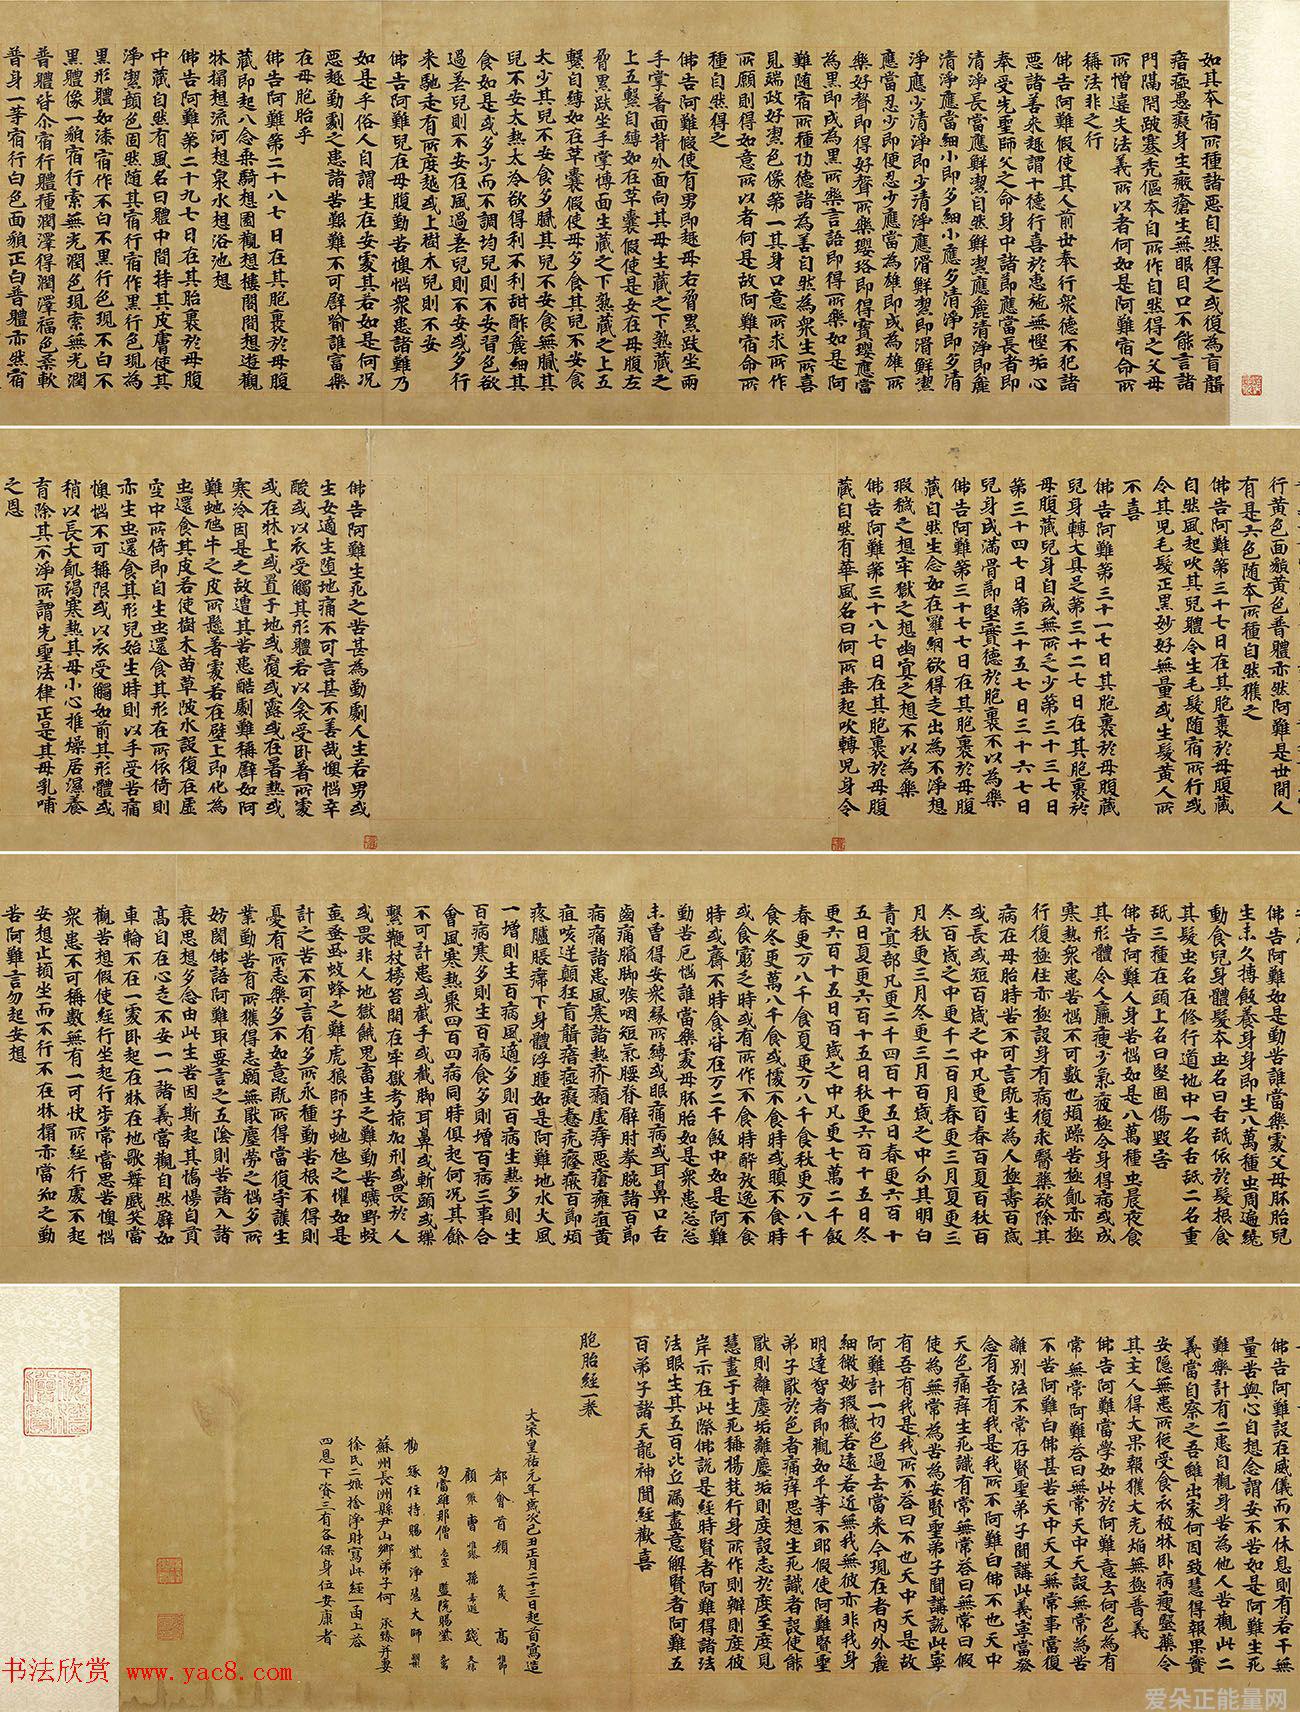 如其本宿所種諸惡自然得之或復為盲聾
瘖瘂愚癡身生瘢瘡生無眼目口不能言諸
門隔閉跛蹇禿傴本自所作自然得之父母
所憎違失法義所以者何如是阿難宿命所
種法非之行
佛告阿難假使其人前世奉行眾德不犯諸
惡諸善來趣謂十德行喜於惠施無慳垢心
奉受先聖師父之命身中諸節應當長者即
清淨長當應鮮潔自然鮮潔應麁清淨即麁
清淨應當細小即多細小應多清淨即多清
淨應少清淨即少清淨應滑鮮潔即滑鮮潔
應當忍少即便忍少應當為雄即成為雄所
樂好聲即得好聲所樂瓔珞即得寶瓔應當
為黑即成為黑所樂言語即得所樂如是阿
難隨宿所種功德諸為善自然為眾生所喜
見端政好潔色像第一其身口意所求所作
所願則得如意所以者何是故阿難宿命所
種自然得之
佛告阿難假使有男即趣母右脅累趺坐兩
手掌著面背外面向其母生藏之下熟藏之
上五繫自縛如在革囊假使是女在母腹左
脅累趺坐手掌博面生藏之下熟藏之上五
繫自縛如在革囊假使母多食其兒不安食
太少其兒不安食多膩其兒不安食無膩其
兒不安太熱太冷欲得利不利甜酢麁細其
食如是或多少而不調均兒則不安習色欲
過差兒則不安在風過差兒則不安或多行
來馳走有所度越或上樹木兒則不安
佛告阿難兒在母腹勤苦懊惱眾患諸難乃
如是乎俗人自謂生在安處其若如是何況
惡趣勤劇之患諸苦艱難不可譬喻誰當樂
在母胞胎乎
佛告阿難第二十八七日在其胞裹於母腹
藏即起八念乘騎想園觀想樓閣間想遊觀
牀榻想流河想泉水想浴池想
佛告阿難第二十九七日在其胎裹於母腹
中藏自然有風名曰體中間持其皮膚使其
淨潔顏色固然隨其宿行宿作黑行色現為
黑形體如漆宿作不白不黑行色現不白不
黑體像一貌宿行素無光潤色現素無光潤
普體皆尒宿行體種潤澤得潤澤福色柔軟
普身一等宿行白色面貌正白普體亦然宿
行黃色面貌黃色普體亦然阿難是世間人
有是六色隨本所種自然獲之
佛告阿難第三十七日在其胞裹於母腹藏
自然風起吹其兒體令生毛髮隨宿所行或
令其兒毛髮正黑妙好無量或生髮黃人所
不喜
佛告阿難第三十一七日其胞裹於母腹藏
兒身轉大具足第三十二七日在其胞裹於
母腹藏兒身自成無所乏少第三十三七日
第三十四七日第三十五七日三十六七日
兒身成滿骨節堅實德於胞裹不以為樂
佛告阿難第三十七七日在其胞裹於母腹
藏自然生念如在羅網欲得走出為不淨想
瑕穢之想牢獄之想幽冥之想不以為樂
佛告阿難第三十八七日在其胞裹於母腹
藏自然有華風名曰何所垂起吹轉兒身令
佛告阿難生死之苦甚為勤劇人生若男或
生女適生墮地痛不可言甚不善哉懊惱辛
酸或以衣受觸其形體若以衾受卧著所處
或在牀上或置于地或覆或露或在暑熱或
寒冷因是之故遭其苦患酷劇難稱譬如阿
難虵虺牛之皮所懸著處若在壁上即化為
虫還食其皮若使樹木苗草陂水設復在虛
空中所倚即自生虫還食其形在所依倚則
亦生虫還食其形兒始生時則以手受苦痛
懊惱不可稱限或以衣受觸如前其形體或
稍以長大飢渴寒熱其母小心推燥居濕養
育除其不淨所謂先聖法律正是其母乳哺
之恩
佛告阿難如是勤苦誰當樂處父母胚胎兒
生未久搏飯養身身即生八萬種虫周遍繞
動食兒身體髮本虫名曰舌舐依於髮根食
其髮虫名在修行道地中一名舌舐二名重
舐三種在頭上名曰堅固傷毀害
佛告阿難人身苦惱如是八萬種虫晨夜食
其形體令人羸瘦少氣疲極令身得病或成
寒熱眾患苦惱不可數也煩躁苦極飢亦極
行復極住亦極設身有病復求醫藥欲除其
病在母胎時苦不可言既生為人極壽百歲
或長或短百歲之中凡更百春百夏百秋百
冬百歲之中更千二百月春更三月夏更三
月秋更三月冬更三月百歲之中分其明白
青冥部凡更二千四百十五日春更六百十
五日夏更六百十五日秋更六百十五日冬
更六百十五日百歲之中凡更七萬二千飯
春更万八千食夏更万八千食秋更万八千
食冬更萬八千食或懅不食時或瞋不食時
或食窮乏之時或有所作不食時醉放逸不食
時或齋不時食皆在万二千飯中如是阿難
勤苦厄惱誰當樂處母胚胎如是眾患怱怱
未曾得安眾緣所縛或眼痛病或耳鼻口舌
齒痛膑脚喉咽短氣腰脊臂肘拳腕諸百節
病痛諸患風寒諸熱疥癩虛痔惡瘡癰疽黃
疸咳逆顛狂盲聾瘖瘂癡惷疣癃痿百節煩
疼臚脹滯下身體浮腫如是阿難地水火風
一增則生百病風適多則百病生熱多則生
百病寒多則生百病食多則增百病三事合
會風寒熱聚四百四病同時俱起何況其餘
不可計患或截手或截脚耳鼻或斬頭或璅
繫鞭杖榜笞閉在牢獄考掠加刑或畏於人
或畏非人地獄餓鬼畜生之難勤苦曠野蚊
虻蚤虱蚊蜂之難虎狼師子虵虺之懼如是
計之苦不可言有多所求種勤苦根不得則
憂有所志樂多不如意既所得當復守護生
業勤苦有所獲得志願無猒塵勞之惱多所
妨閡佛語阿難取要言之五陰則苦諸入諸
衰思想多念由此生苦因斯起其憍慢自貢
高自在心走不安一一諸義當觀自然譬如
車輪不在一處卧起在牀在地歌舞戲笑當
觀苦想假使經行坐起行步常當思苦懊惱
眾患不可稱數無有一可快所經行處不起
安想止頓坐而不行不在牀榻亦當知之勤
苦阿難言勿起安想
佛告阿難設在威儀而不休息則有若干無
量苦與心自想念謂安不苦如是阿難生死
難樂計有二患自觀身苦為他人苦觀此二
義當自察之吾雖出家何因致慧得報果實
安隱無患所從受食衣被牀卧病瘦醫藥令
其主人得大果報獲大光焰無極普義
佛告阿難當學如此於阿難意去何色為有
常無常阿難答曰無常天中天設無常為苦
不苦阿難白佛甚苦天中天又無常事當復
離別法不常存賢聖弟子聞講此義寧當發
念有吾有我是我所不阿難白佛不也天中
天色痛痒生死識有常無常答曰無常曰假
使為無常為苦為安賢聖弟子聞講說此寧
有吾有我是我所不答曰不也天中天是故
阿難計一切色過去當來今現在者內外麁
細微妙瑕穢若遠若近無我無彼亦非我身
明達智者即觀如平等不耶假使阿難賢聖
弟子猒於色者痛痒思想生死識者設使能
猒則離塵垢離塵垢則度設志於度至度見
慧盡于生死稱揚梵行身所作則辦則度彼
岸示在此際佛說是經時賢者阿難得諸法
法眼生其五百比丘漏盡意解賢者阿難五
百弟子諸天龍神聞經歡喜
胞胎經一卷
大宋皇祐元年歲次己丑正月二十三日起首寫造
都會首顏 高
顧 曹 孫 錢
勾當雖那僧 監院賜紫
勸緣住持賜紫淨慧大師
蘇州長洲縣尹山鄉弟子何承臻并妻
徐氏二娘捨淨財寫此經一函上荅
四恩下資三有各保身位安康者
书法欣赏 www.yac8.com
爱朵正能量网